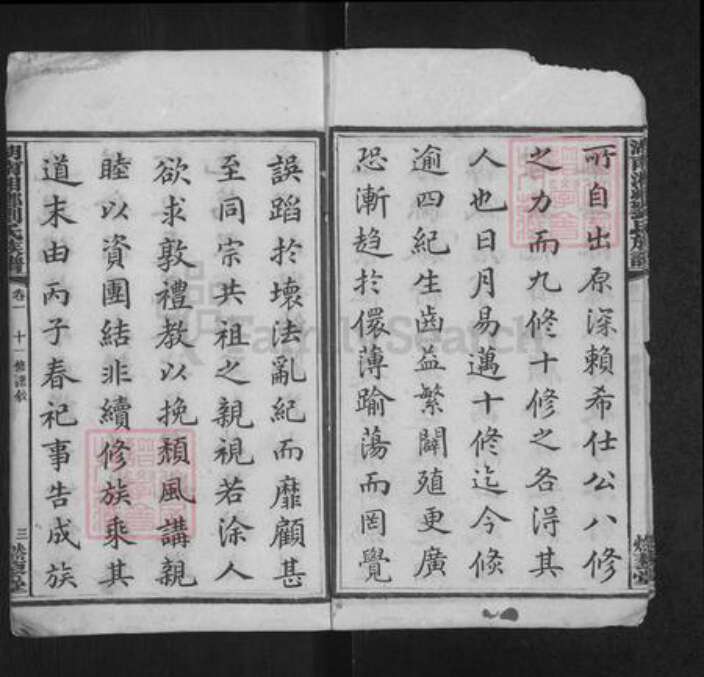 所自出原深賴希仕公八修
之力而九修十修之各得其
人也日月易邁十修迄今倐
逾四紀生齒益繁闢殖更廣
恐漸趋於儇薄踰蕩而罔覺
誤蹈於壞法亂紀而靡顧甚
至同宗共祖之親視若涂人
欲求敦禮教以挽頹風講親
睦以資團結非續修族乘其
道末由丙子春祀事告成族
湖南湘鄉劉氏族譜
卷一
十一修譜敘
三
FamilySearch